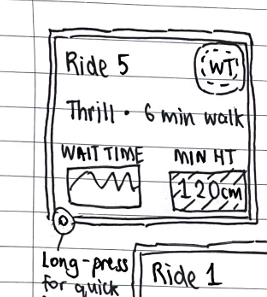 Ride 5
WT
Thrill • 6 min walk
WAIT TIME MIN HT
120cm
Long-press
for quick
Ride 1